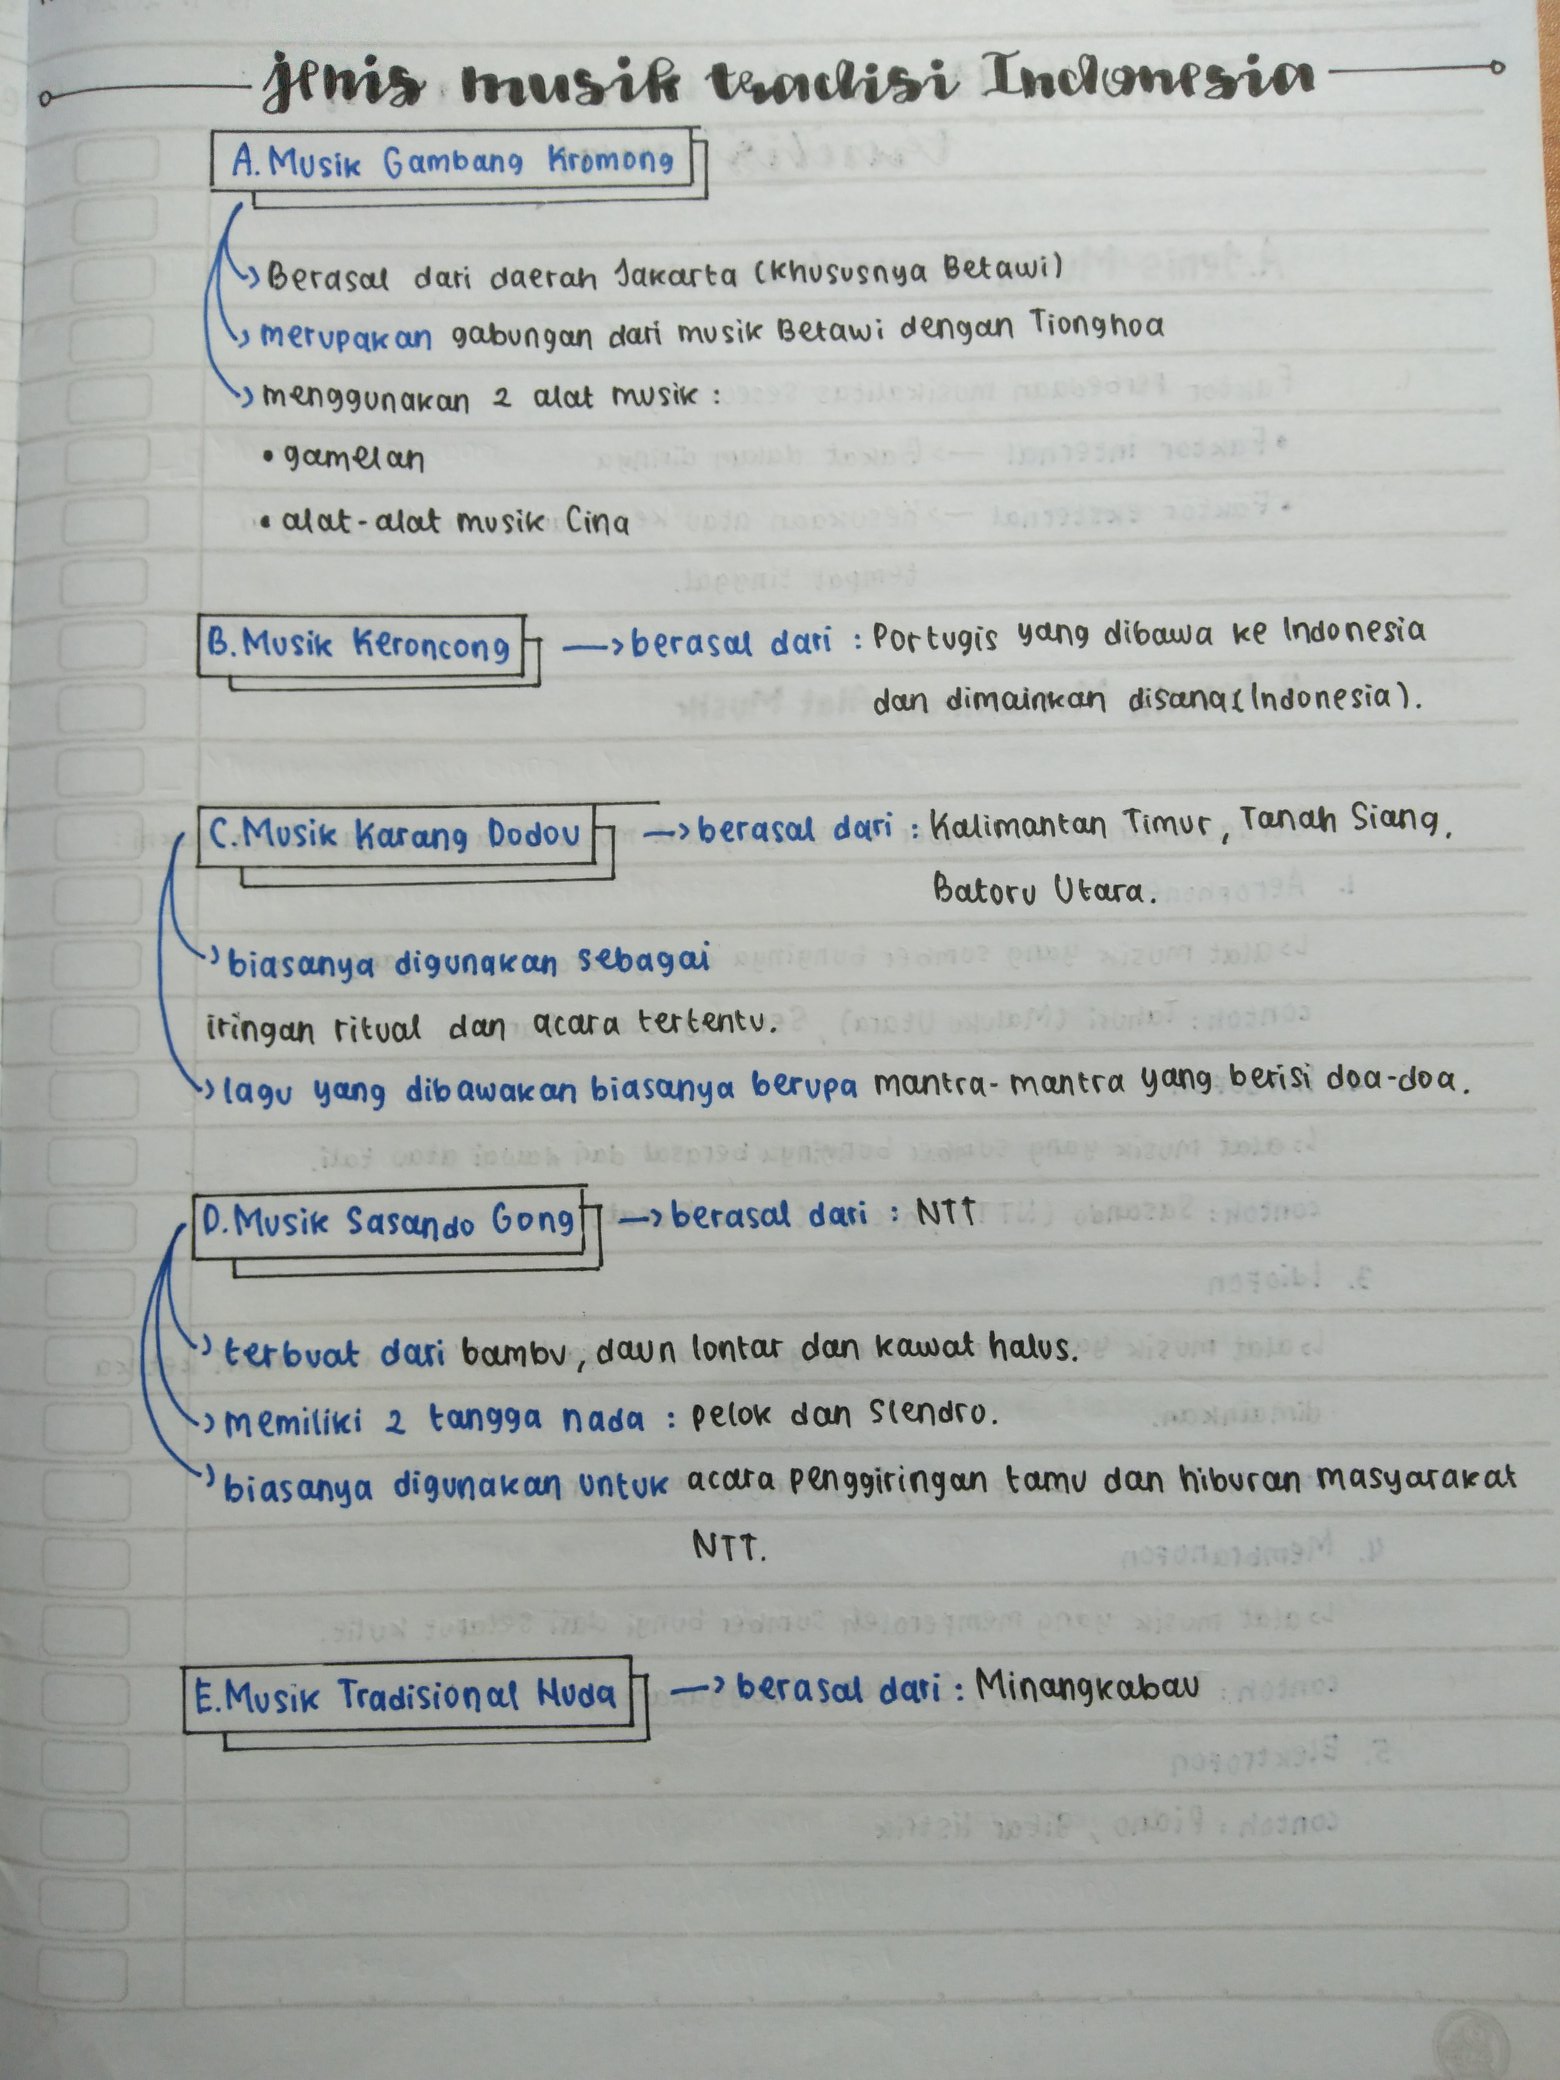 jenis musik tradisi Indonesia
A. Musik Gambang Kromong
Berasal dari daerah Jakarta (khususnya Betawi)
merupakan gabungan dari musik Betawi dengan Tionghoa
menggunakan 2 alat musik :
• gamelan
• alat-alat musik Cina
B. Musik Keroncong → berasal dari : Portugis yang dibawa ke Indonesia
dan dimainkan disana (Indonesia).
C. Musik Karang Dodou → berasal dari : Kalimantan Timur, Tanah Siang,
Batoru Utara.
biasanya digunakan sebagai
iringan ritual dan acara tertentu.
lagu yang dibawakan biasanya berupa mantra-mantra yang berisi doa-doa.
D. Musik Sasando Gong → berasal dari : NTT
terbuat dari bambu, daun lontar dan kawat halus.
memiliki 2 tangga nada : pelok dan slendro.
biasanya digunakan untuk acara penggiringan tamu dan hiburan masyarakat
NTT.
E. Musik Tradisional Huda → berasal dari : Minangkabau